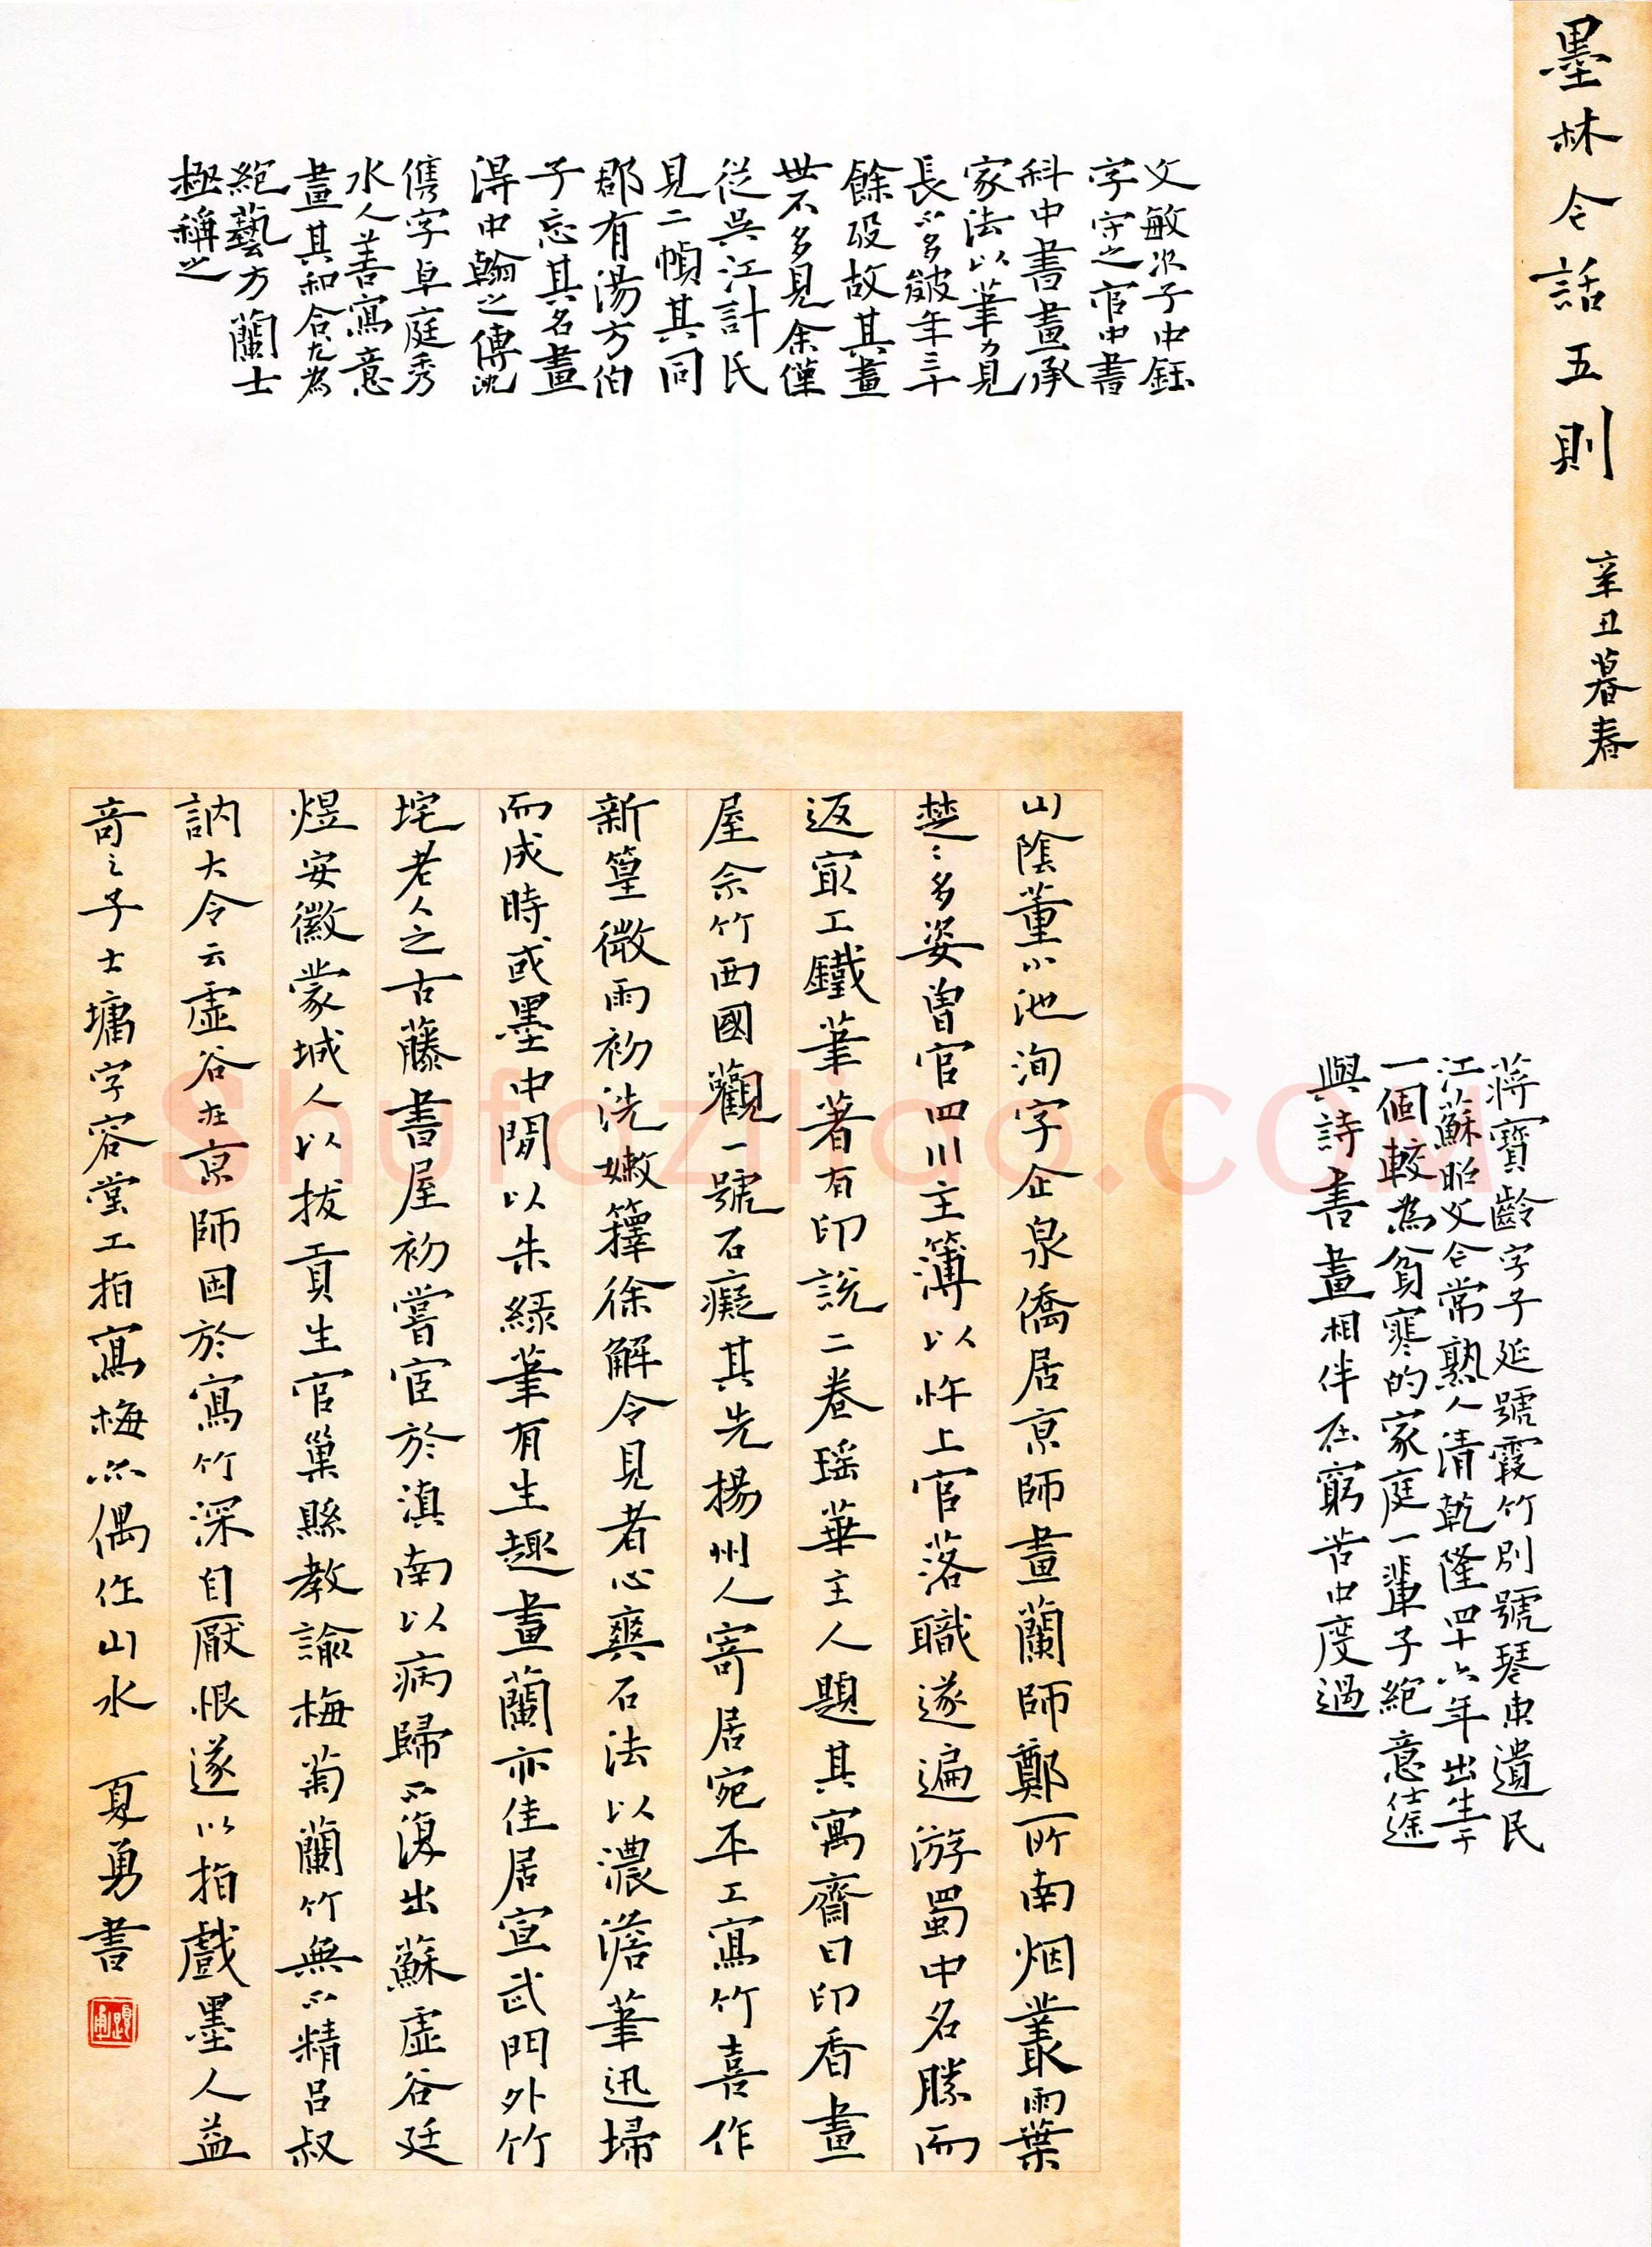 墨林今話五則
辛丑暮春
蔣寶齡字子延號霞竹別號琴東遺民
江蘇昭文今常熟人清乾隆四十六年出生于
一個較為貧寒的家庭一輩子絕意仕途
與詩書畫相伴在窮苦中度過
文敏次子中鈺
字守之官中書
科中書畫承
家法以筆力見
長不多皴年三十
餘歿故其畫
世不多見余僅
從吳江計氏
見二幀其同
郡有湯方伯
子忘其名畫
得中翰之傳沈
儁字卓庭秀
水人善寫意
畫其和合尤為
絕藝方蘭士
極稱之
山陰董小池洵字企泉僑居京師畫蘭師鄭所南烟叢雨葉
楚楚多姿曾官四川主簿以忤上官落職遂遍游蜀中名勝而
返寂工鐵筆著有印說二卷瑤華主人題其寓齋曰印香畫
屋余竹西國觀一號石癡其先揚州人寄居宛平工寫竹喜作
新篁微雨初洗嫩籜徐解令見者心爽石法以濃澹筆迅掃
而成時或墨中間以朱綠筆有生趣畫蘭亦佳居宣武門外竹
垞老人之古藤書屋初嘗宦於滇南以病歸不復出蘇虛谷廷
煜安徽蒙城人以拔貢生官巢縣教諭梅菊蘭竹無不精呂叔
訥大令云虛谷在京師困於寫竹深自厭恨遂以指戲墨人益
奇之子士墉字容堂工指寫梅亦偶作山水 夏勇書
Shufaziliao.COM